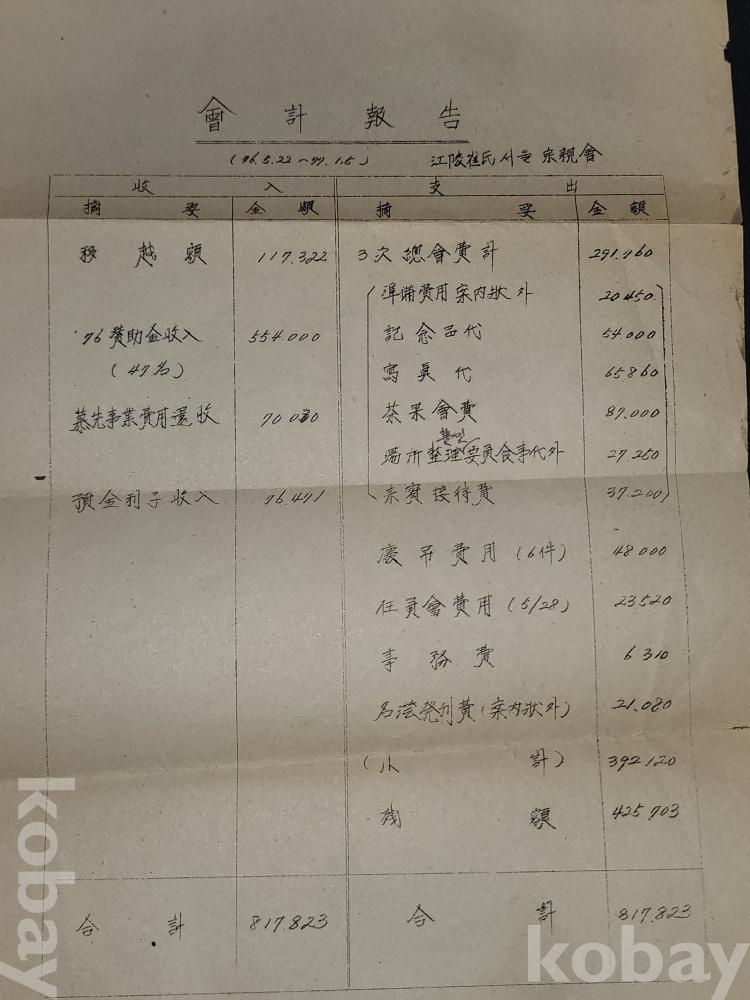 會計報告
(76.5.22~77.1.5) 江陵崔氏서울宗親會
收入 支出
摘要 金額 摘要 金額
移越額 117.322 3次總會費計 291.760
準備費用案内狀外 20.450
'76贊助金收入 554.000 記念品代 54.000
(47名) 寫眞代 65.860
慕先事業費用還收 70.030 茶果會費 87.000
場所整理委員食事代外 27.250
預金利子收入 76.471 來賓接待費 37.200
慶弔費用(6件) 48.000
任員會費用(5/28) 23.520
事務費 6.310
名簿發刊費(案内狀外) 21.080
(小計) 392.120
殘額 425.703
合計 817.823 合計 817.823
kobay
kobay